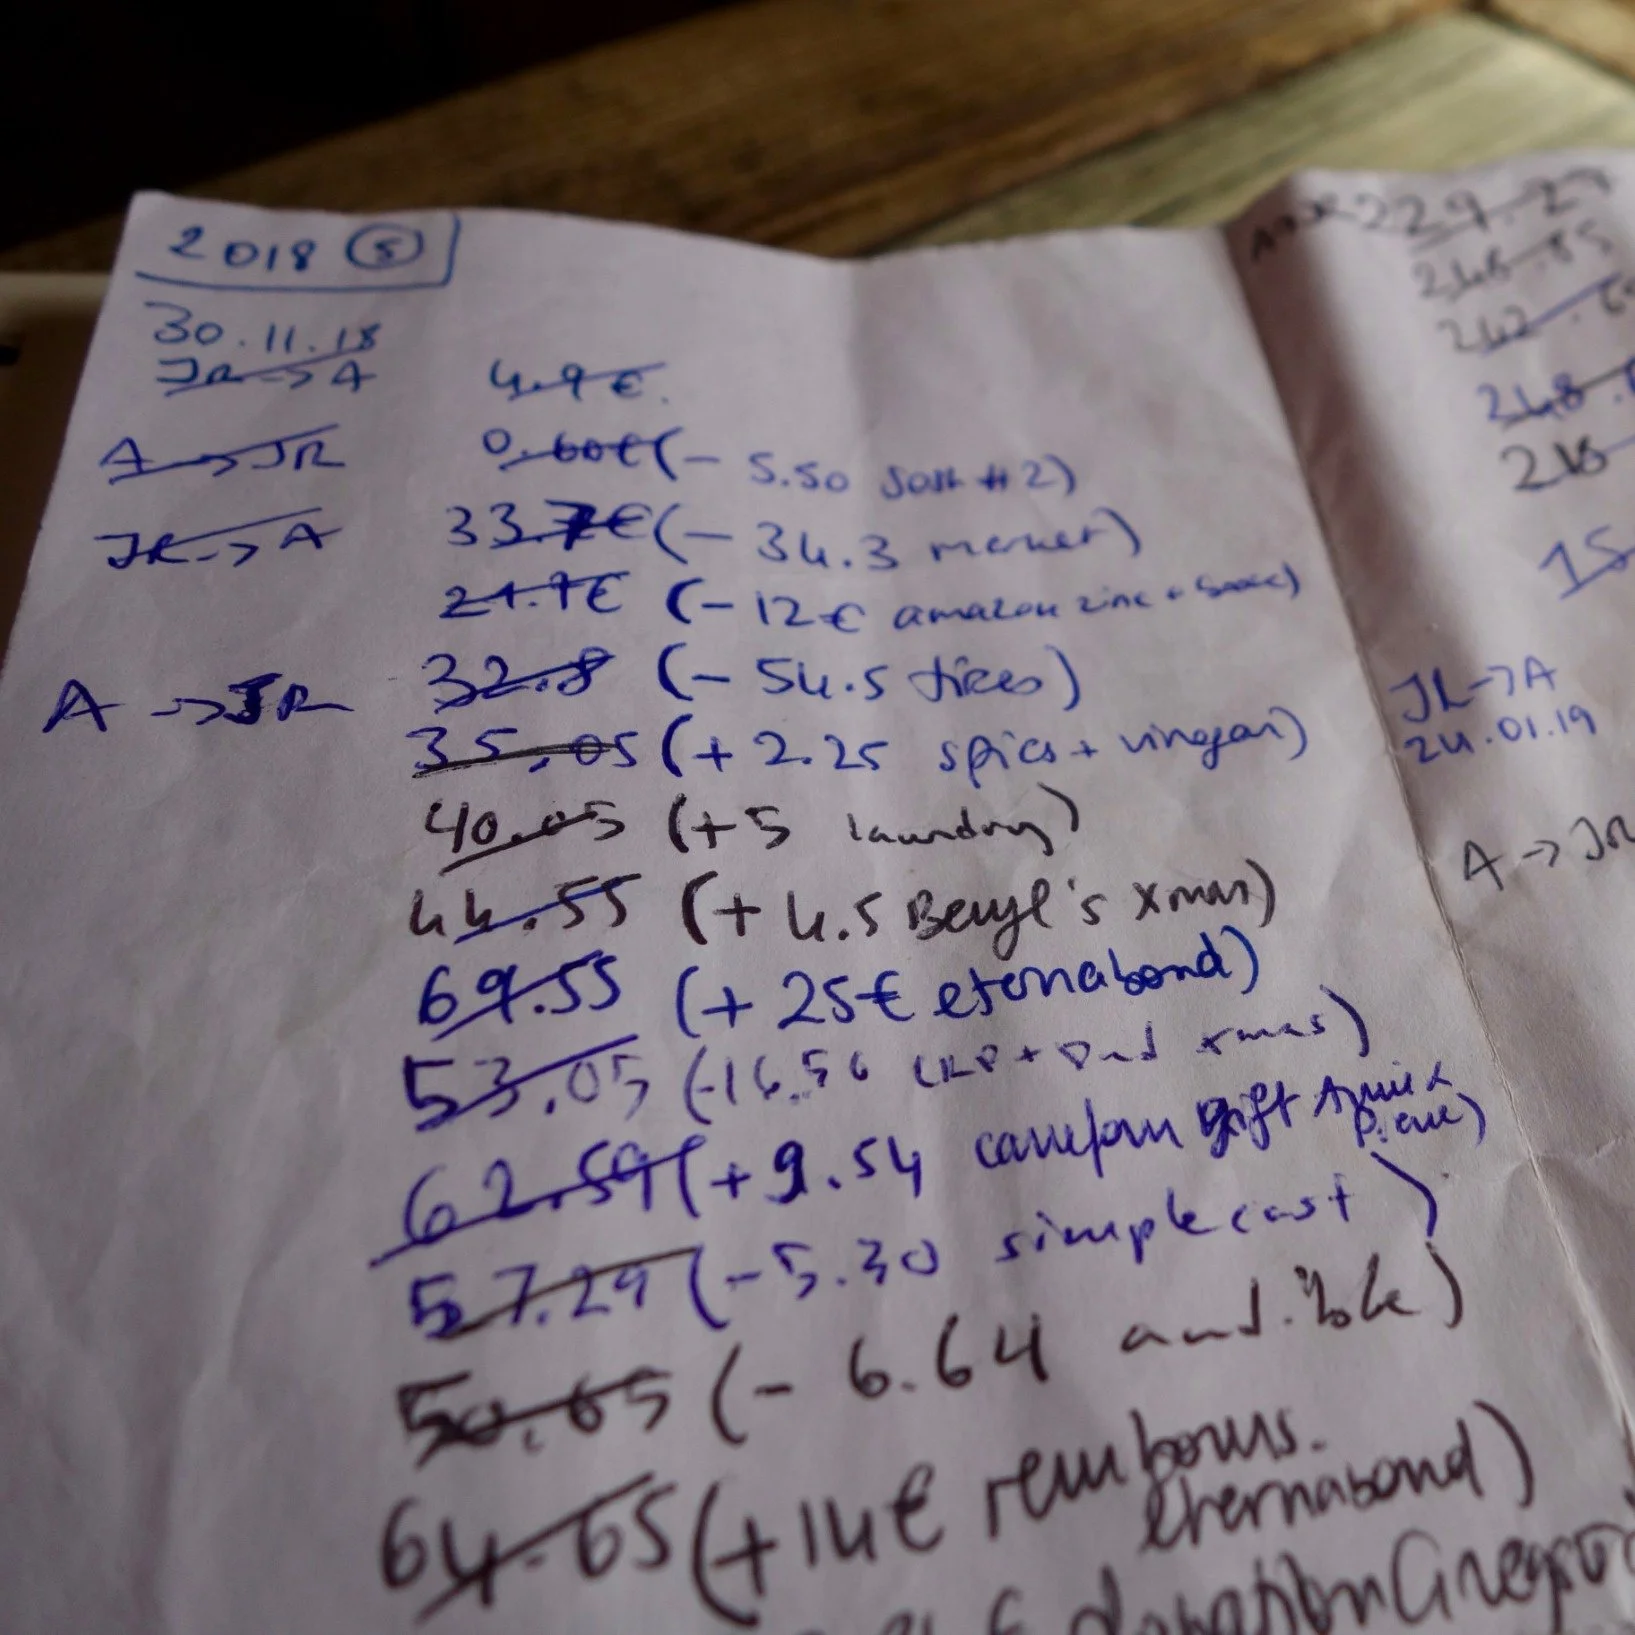 2018 (5)
30.11.18
JR -> A 4.9€.
A -> JR 0.60€ (- 5.50 #2)
JR -> A 33.7€ (- 34.3 market)
21.7€ (- 12€ amazon zinc +
A -> JR 32.8 (- 54.5 tires)
35.05 (+ 2.25 spices + vinegar)
40.05 (+ 5 laundry)
44.55 (+ 4.5 Beryl's xmas)
69.55 (+ 25€ eternabond)
53.05 (-16.50 + Dad xmas)
62.59 (+ 9.54 gift
57.29 (- 5.30 simplecast)
50.65 (- 6.64 audible)
64.65 (+ 14€ rembours.
eternabond)
donation
229.27
248.
218
15
JR -> A
24.01.19
A -> JR